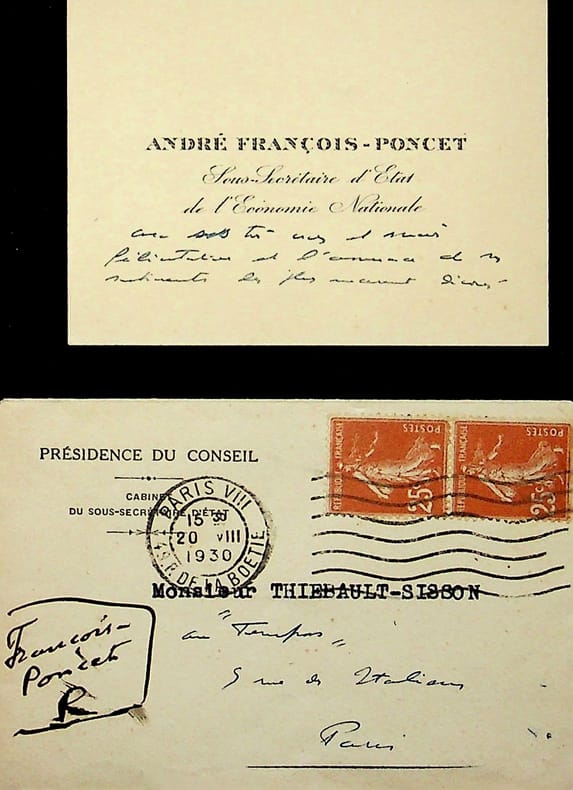 ANDRÉ FRANÇOIS-PONCET
Sous-Secrétaire d'Etat
de l'Economie Nationale
avec ses très et
félicitations et l'assurance de ses
sentiments les plus
POSTES
RÉPUBLIQUE FRANÇAISE
25c
POSTES
RÉPUBLIQUE FRANÇAISE
25c
PRÉSIDENCE DU CONSEIL
CABINET
DU SOUS-SECRÉTAIRE D'ÉTAT
PARIS VIII
15
20 VIII
1930
R. DE LA BOETIE
Monsieur THIEBAULT-SISSON
au "Temps"
5 rue des Italiens
Paris
François-
Poncet
R